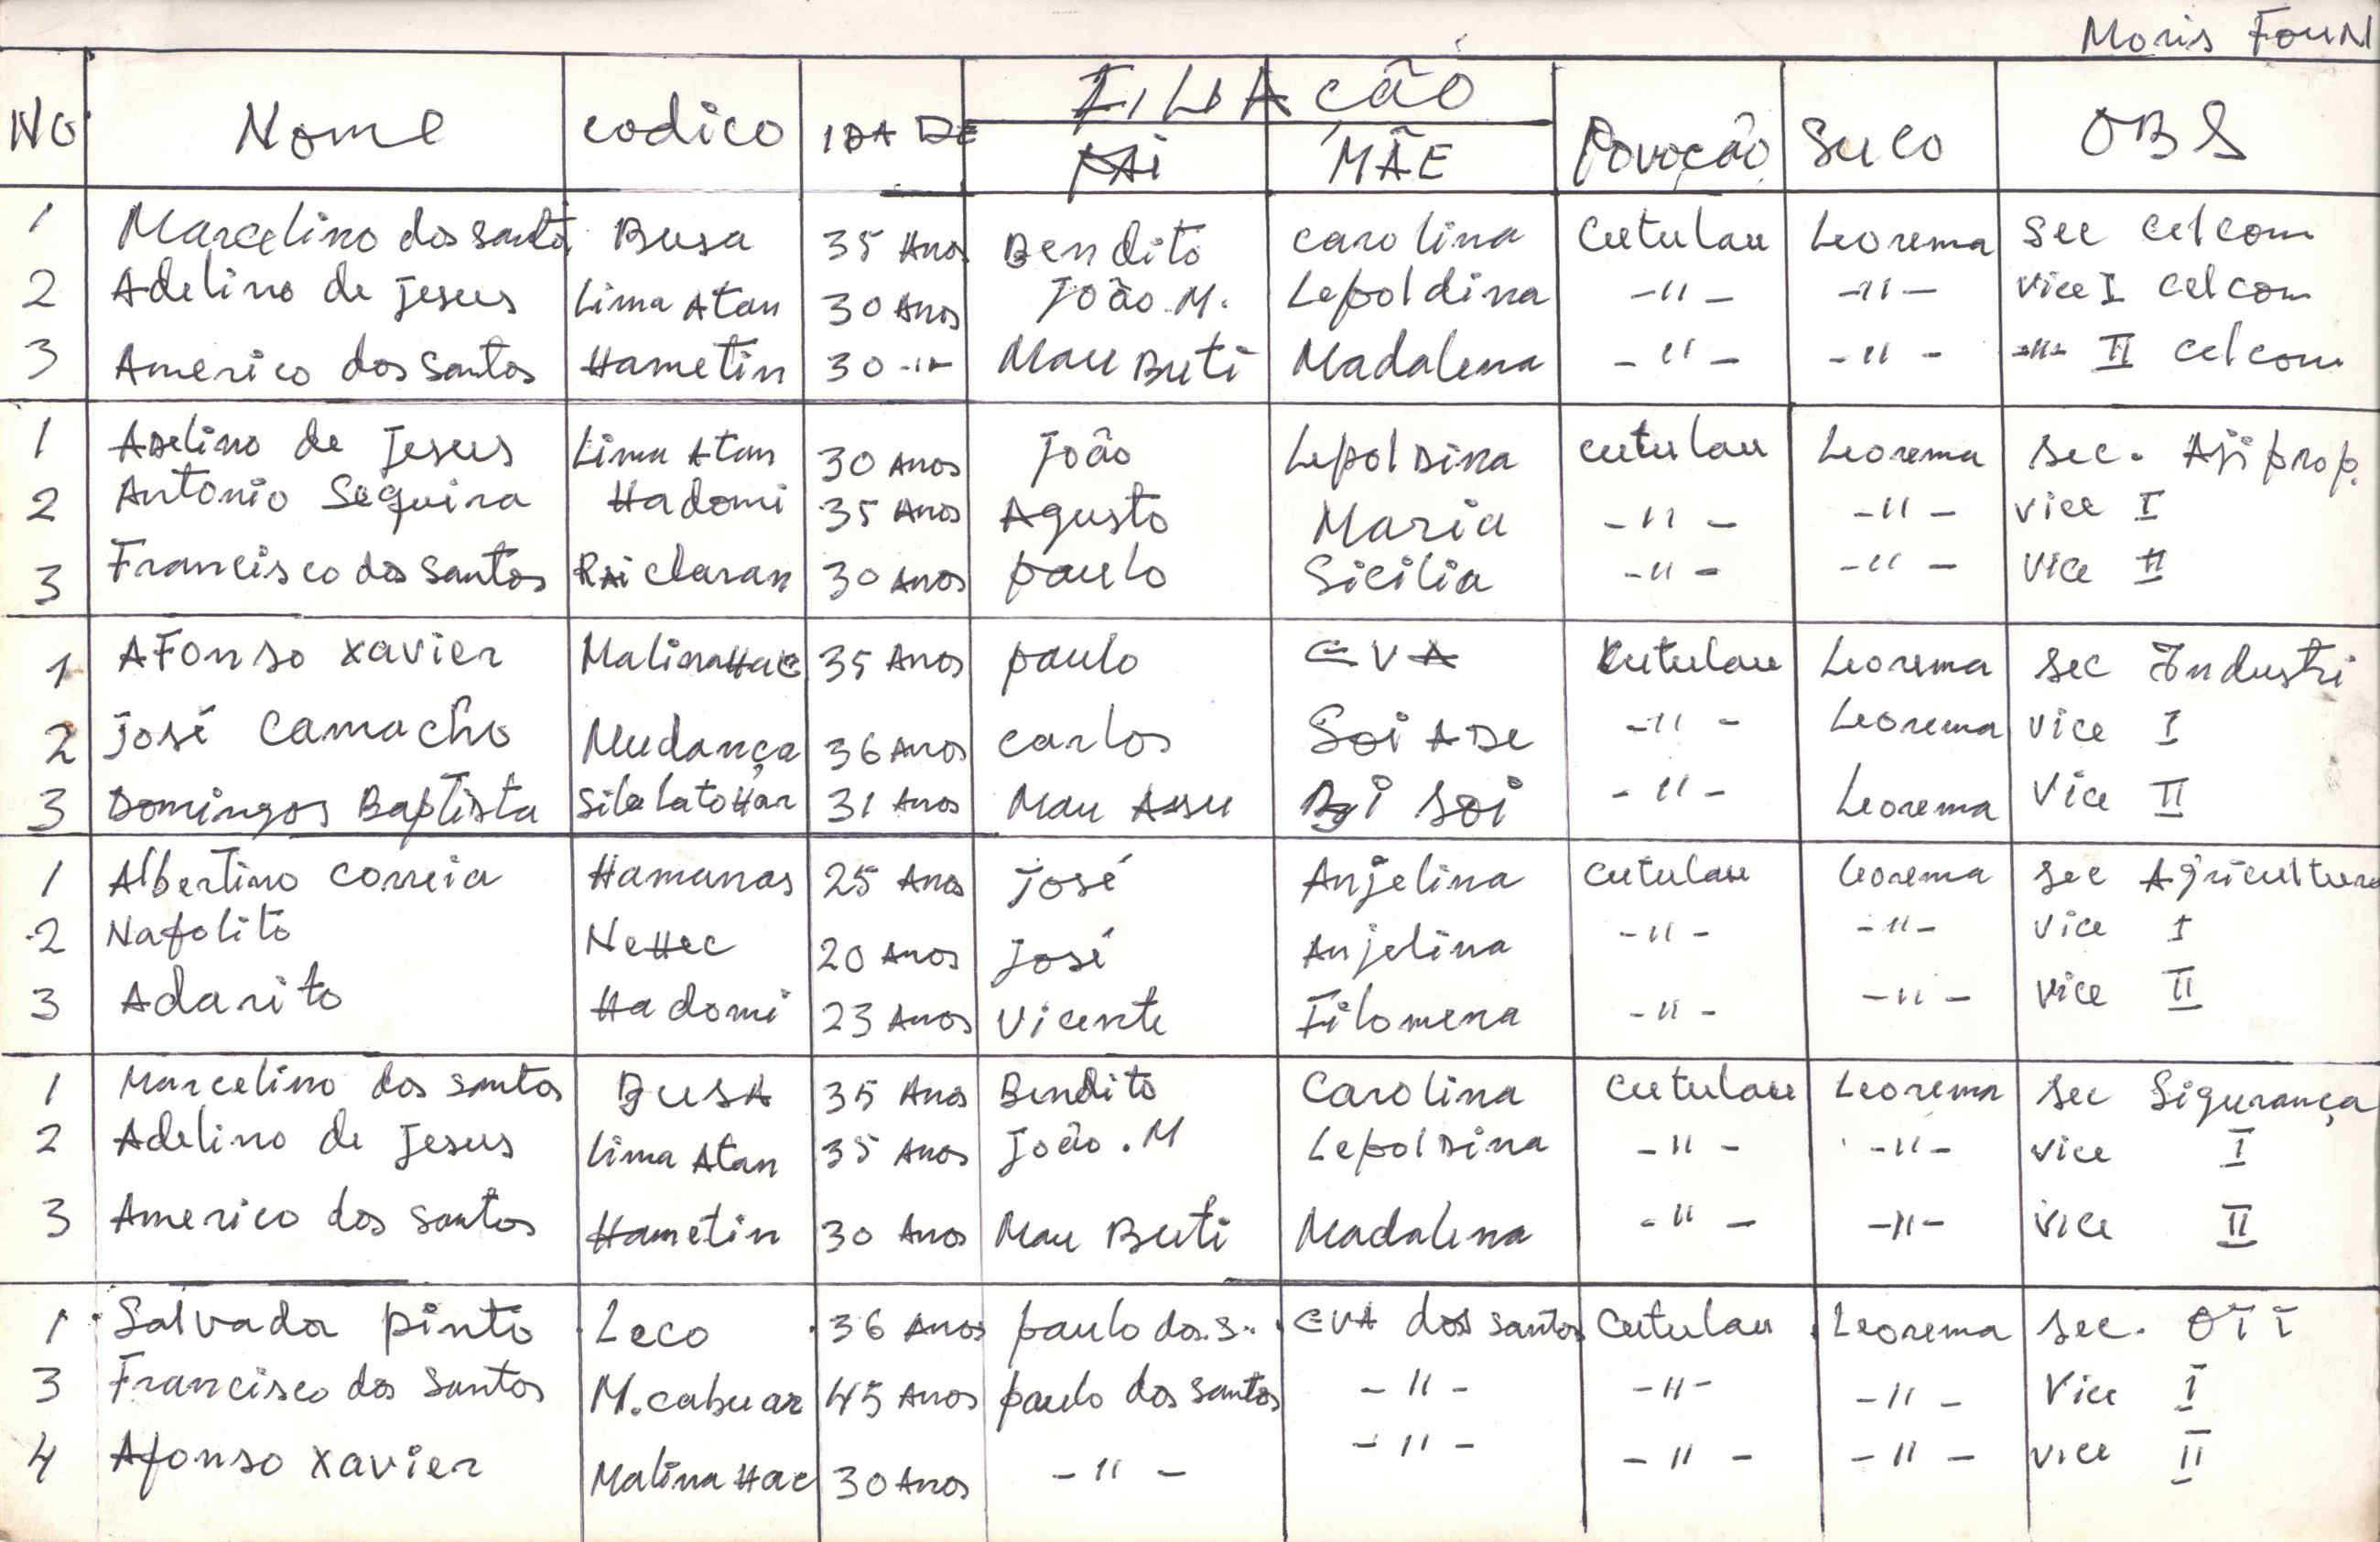 Moris Foun
No Nome codico IDADE FILIAÇÃO Povoção Suco OBS
PAi MÃE
1 Marcelino dos Santos Busa 35 Anos Bendito Carolina Cutulau Leorema Sec celcom
2 Adelino de Jesus Lima Atan 30 Anos João M. Lepoldina -"- -"- Vice I celcom
3 Americo dos Santos Hametin 30 -"- Mau Buti Madalena -"- -"- -"- II celcom
1 Adelino de Jesus Lima Atan 30 Anos João Lepoldina cutulau Leorema Sec. Ajiprop.
2 Antonio Sequira Hadomi 35 Anos Agusto Maria -"- -"- Vice I
3 Francisco dos Santos Rai claran 30 Anos paulo Sicilia -"- -"- Vice II
1 AFonso xavier MalinaHae 35 Anos paulo EVA Cutulau Leorema Sec Industri
2 José Camacho Mudança 36 Anos carlos Soi ADe -"- Leorema Vice I
3 Domingos Baptista Silalatohar 31 Anos Mau Assu Bi Soi -"- Leorema Vice II
1 Albertino correia Hamanas 25 Anos José Anjelina Cutulau Leorema Sec Agricultura
2 Napolito NeHec 20 Anos José Anjelina -"- -"- Vice I
3 Adarito Hadomi 23 Anos Vicente Filomena -"- -"- Vice II
1 Marcelino dos santos BUSA 35 Anos Bendito Carolina Cutulau Leorema Sec Sigurança
2 Adelino de Jesus Lima Atan 35 Anos João.M Lepoldina -"- -"- Vice I
3 Americo dos Santos Hametin 30 Anos Mau Buti Madalena -"- -"- Vice II
1 Salvador pinto Leco 36 Anos paulo dos.S. EVA dos santos Cutulau Leorema Sec. OTT
3 Francisco dos Santos M.cabuar 45 Anos paulo dos santos -"- -"- -"- Vice I
4 Afonso xavier Malina Hae 30 Anos -"- -"- -"- -"- Vice II